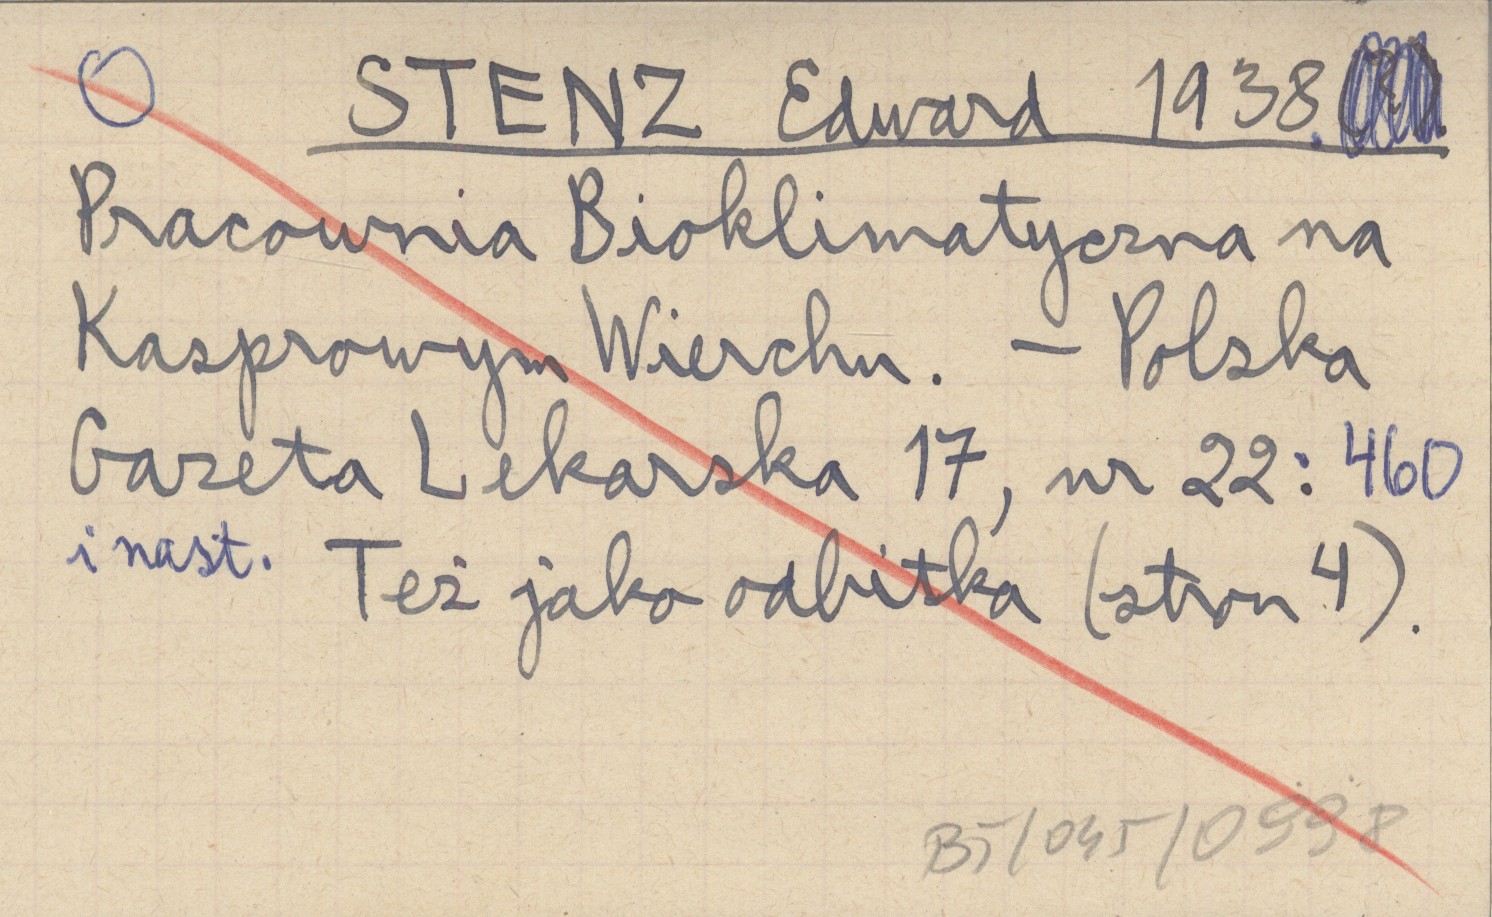 STENZ Edward 1938.
Pracownia Bioklimatyczna na
Kasprowym Wierchu. – Polska
Gazeta Lekarska 17, nr 22: 460
i nast. Też jako odbitka (stron 4).